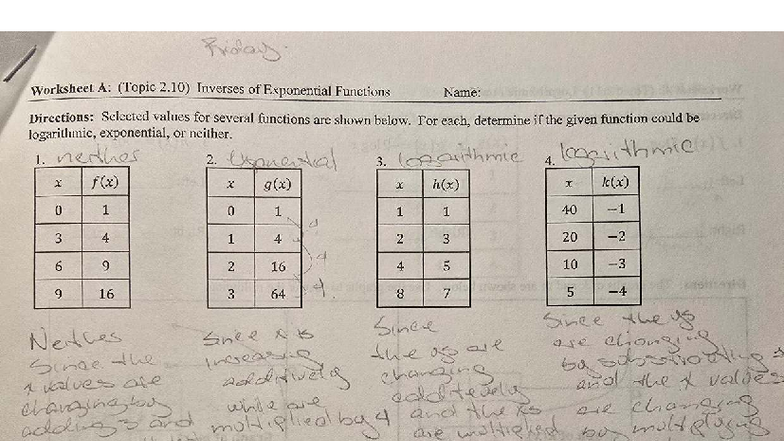 Friday.
Worksheet A: (Topic 2.10) Inverses of Exponential Functions Name:
Directions: Selected values for several functions are shown below. For each, determine if the given function could be
logarithmic, exponential, or neither.
1. neither 2. Exponential 3. logarithmic 4. logarithmic
x f(x) x g(x) x h(x) x k(x)
0 1 0 1 1 1 40 −1
3 4 1 4 2 3 20 −2
6 9 2 16 4 5 10 −3
9 16 3 64 8 7 5 −4
4
4
4.
Neither
Since the
x values are
changing by
adding 3 and
Since x is
increasing
additively
while are
multiplied by 4
Since
the ys are
changing
additevely
and the xs
are multiplied
Since the ys
are changing
by substracting
and the x values
are changing
by multiplying